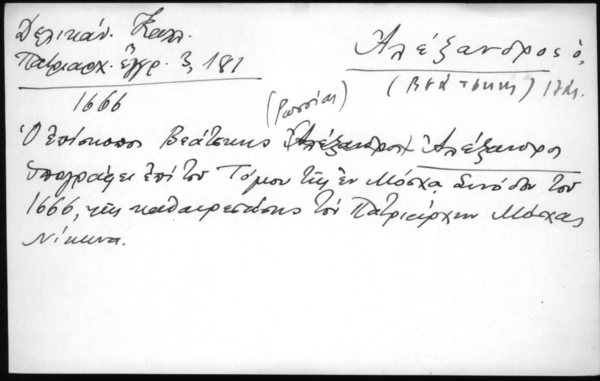 Δελικάν. Καλλ.
Πατριαρχ. ἔγγρ. 3, 181
1666
Ἀλέξανδρος ὁ,
(Βιάτσκης)
(Ρωσσίας)
Ὁ ἐπίσκοπος Βεάτσκης Ἀλέξανδρος
ὑπογράφει ἐπὶ τοῦ Τόμου τῆς ἐν Μόσχᾳ Συνόδου τοῦ
1666, τῆς καθαιρεσάσης τὸν Πατριάρχην Μόσχας
Νίκωνα.